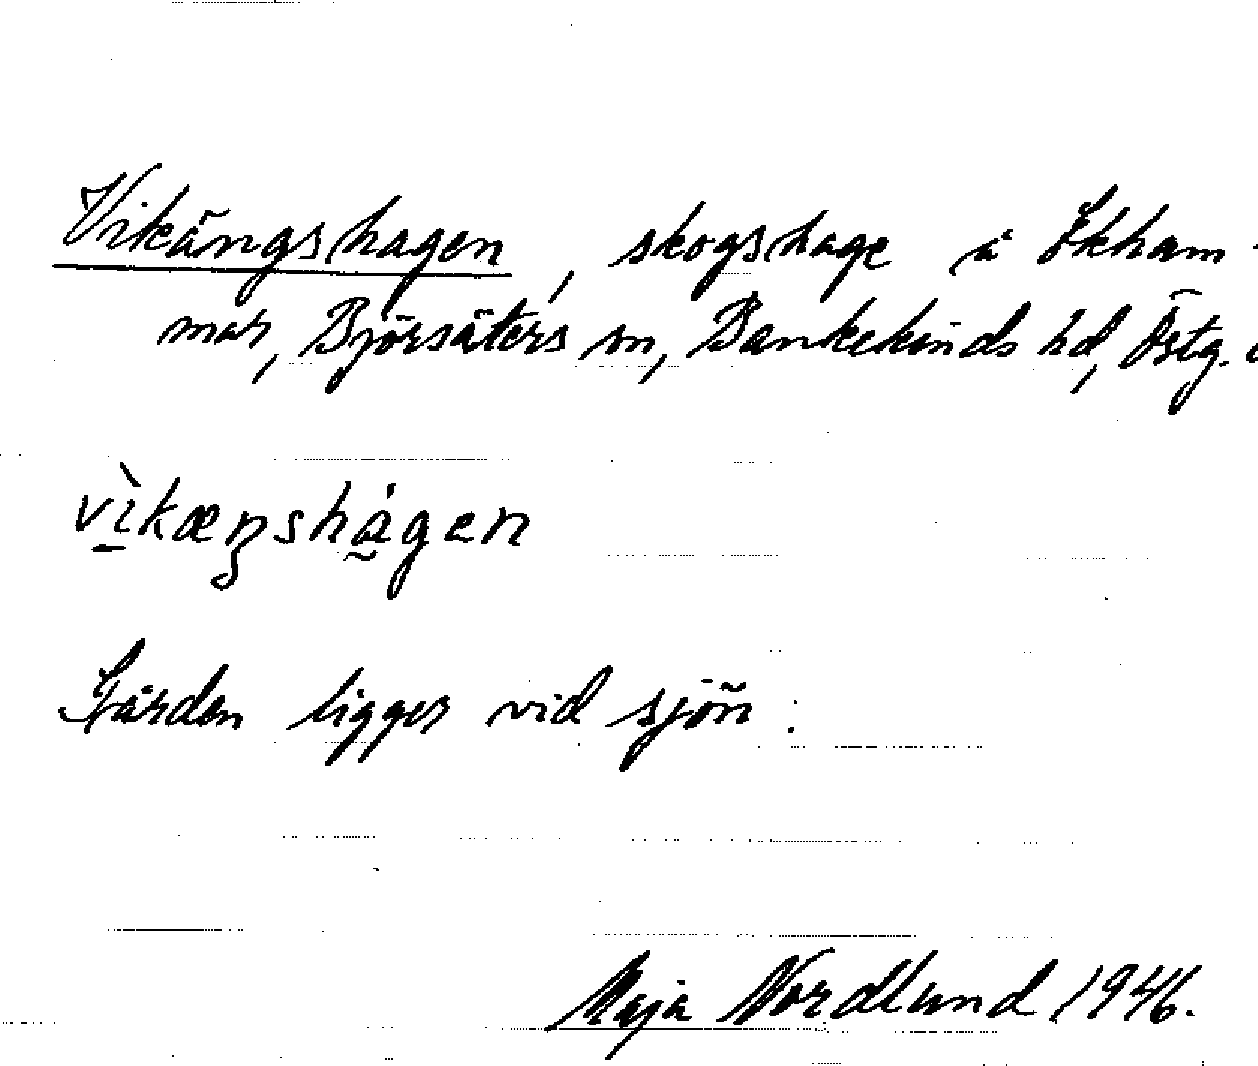 Vikängshagen, skogshage å Ekham-
mar, Björsäters sn, Bankekinds hd, Östg.
vìkæŋshágen
Gården ligger vid sjön.
Maja Nordlund 1946.